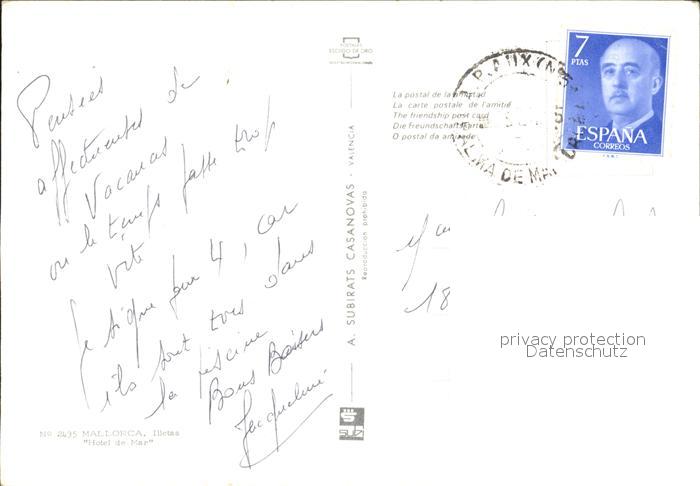 Pensées
affectueuses de
Vacances
ou le temps passe trop
vite
Je signe pour 4, car
ils sont tous dans
la piscine
Bons Baisers
Jacqueline
Nº 2495 MALLORCA, Illetas
"Hotel de Mar"
POSTALES
ESCUDO DE ORO
A. SUBIRATS CASANOVAS - VALENCIA
Reproducción prohibida
La postal de la amistad
La carte postale de l'amitié
The friendship post card
Die Freundschaftskarte
O postal da amizade
PALMA DE MAL
7
PTAS
ESPAÑA
CORREOS
18
privacy protection
Datenschutz